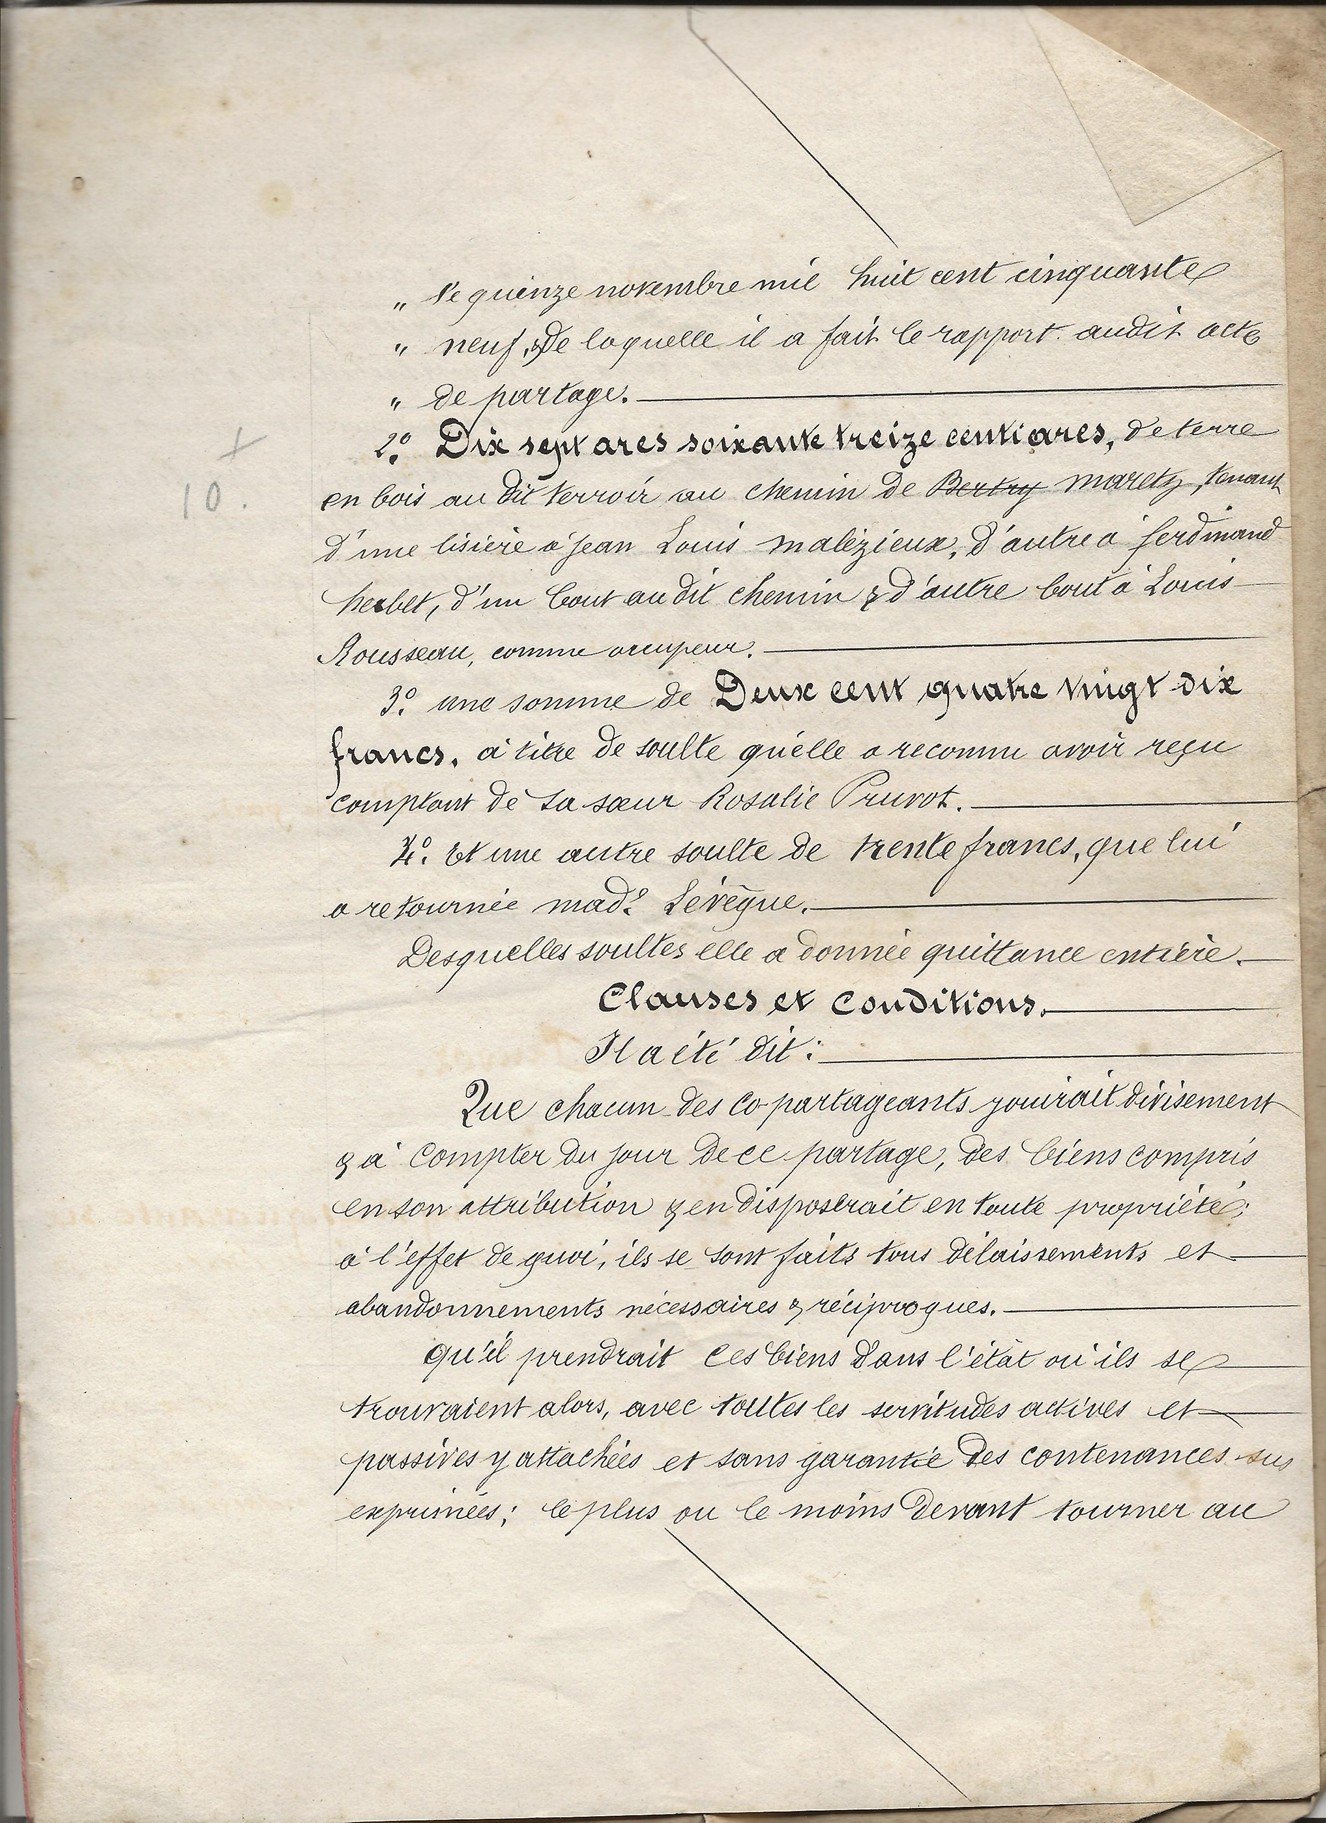 „ le quinze novembre mil huit cent cinquante
„ neuf, de laquelle il a fait le rapport audit acte
„ de partage.
+
2º. Dix sept ares soixante treize centiares, de terre
10.
en bois au dit terroir au chemin de Bertry maretz, tenant
d'une lisière à Jean Louis malézieux, d'autre à ferdinand
herbet, d'un bout au dit chemin & d'autre bout à Louis
Rousseau, comme occupeur.
3º. une somme de Deux cent quatre vingt dix
francs, à titre de soulte qu'elle a reconnu avoir reçu
comptant de sa sœur Rosalie Pruvot.
4º. Et une autre soulte de trente francs, que lui
a retournée made. Levêque.
Desquelles soultes elle a donnée quittance entière.
Clauses et conditions.
Il a été dit:
Que chacun des co-partageants jouirait divisement
& à compter du jour de ce partage, des biens compris
en son attribution & en disposerait en toute propriété;
à l'effet de quoi, ils se sont faits tous délaissements et
abandonnements nécessaires & réciproques.
qu'il prendrait ces biens dans l'état où ils se
trouvaient alors, avec toutes les servitudes actives et
passives y attachées et sans garantie des contenances sus
exprimées; le plus ou le moins devant tourner au